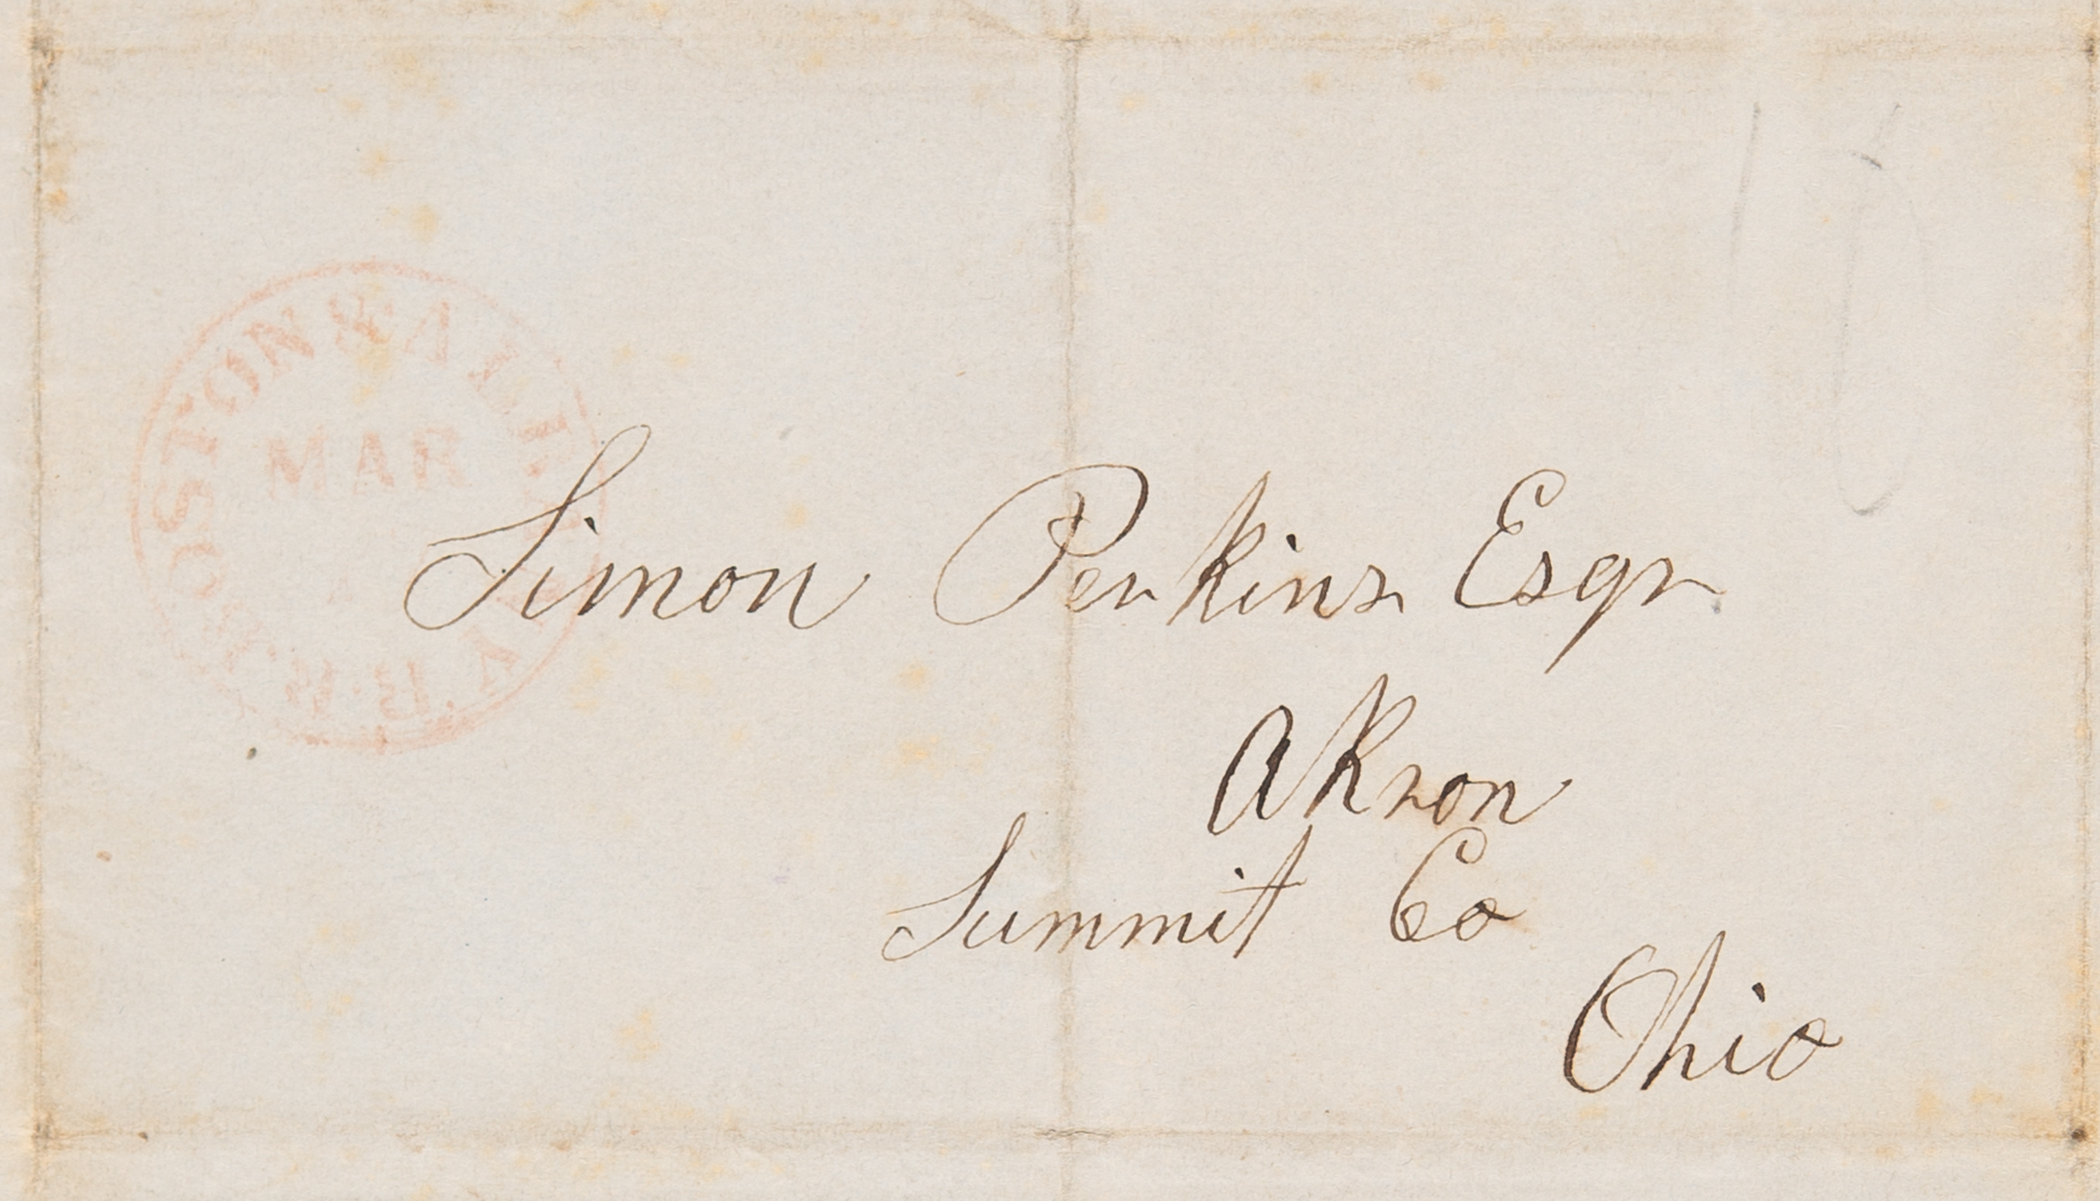 BOSTON & ALBANY R.R.
MAR
Simon Perkins Esqr
Akron
Summit Co
Ohio